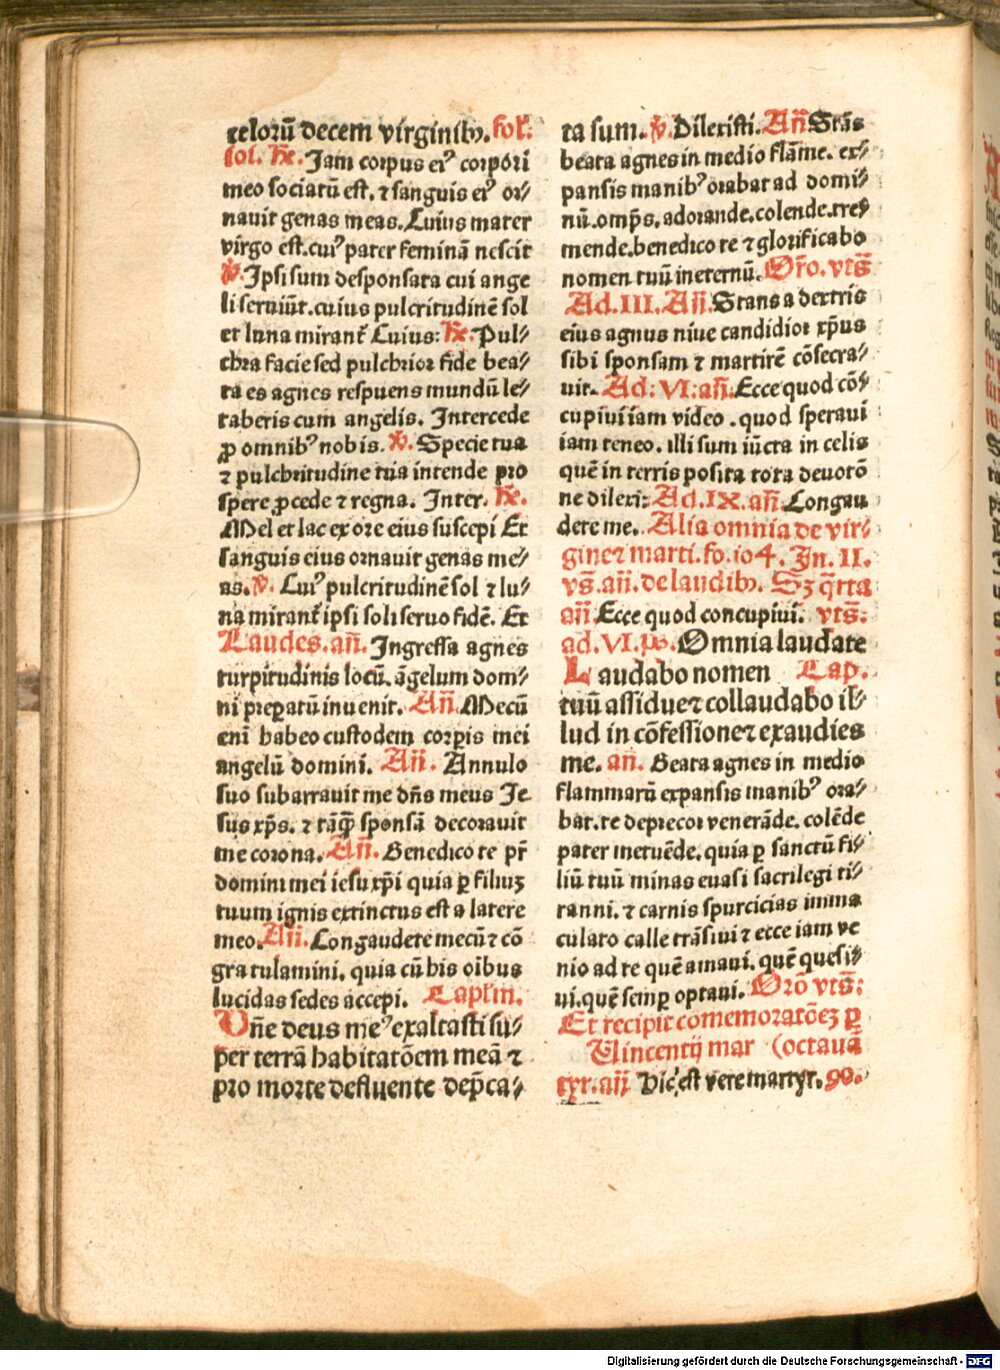 celorū decem virginibꝰ. fol.
sol. ℟. Jam corpus eiꝰ corpori
meo sociatū est. ⁊ sanguis eiꝰ or⸗
nauit genas meas. Cuius mater
virgo est. cuiꝰ pater feminā nescit
℣. Ipsi sum desponsata cui ange
li seruiūt. cuius pulcritudinē sol
et luna mirant᷑ Cuius: ℟. Pul⸗
chra facie sed pulchrior fide bea⸗
ta es agnes respuens mundū le⸗
taberis cum angelis. Intercede
ꝓ omnibꝰ nobis. ℣. Specie tua
⁊ pulchritudine tua intende pro
spere ꝓcede ⁊ regna. Inter. ℟.
Mel et lac ex ore eius suscepi Et
sanguis eius ornauit genas me⸗
as. ℣. Cuiꝰ pulcritudinē sol ⁊ lu⸗
na mirant᷑ ipsi soli seruo fidē. Et
Laudes. an̄. Ingressa agnes
turpitudinis locū. āgelum dom⸗
ni prepatū inuenit. An̄. Mecū
eni habeo custodem corpis mei
angelū domini. An̄. Annulo
suo subarrauit me dn̄s meus Je
sus xp̄s. ⁊ tāq̄ sponsā decorauit
me corona. An̄. Benedico te pr̄
domini mei iesu xp̄i quia ꝑ filiuꝫ
tuum ignis extinctus est a latere
meo. An̄. Congaudete mecū ⁊ cō
gratulamini. quia cū his oībus
lucidas sedes accepi. Caplm̄.
Dn̄e deus meꝰ exaltasti su⸗
per terrā habitatōem meā ⁊
pro morte defluente dep̄ca⸗
ta sum. ℣. Dilexisti. An̄ Stās
beata agnes in medio flāme. ex⸗
pansis manibꝰ orabat ad domi⸗
nū. omp̄s. adorande. colende. tre⸗
mende. benedico te ⁊ glorificabo
nomen tuū in eternū. Or̄o. vts̄
Ad. III. An̄. Stans a dextris
eius agnus niue candidior xp̄us
sibi sponsam ⁊ martirē cōsecra⸗
uit. Ad: VI: an̄. Ecce quod cō⸗
cupiui iam video. quod speraui
iam teneo. illi sum iūcta in celis
quē in terris posita tota deuotō
ne dilexi: Ad. IX. an̄. Congau
dete me. Alia omnia de vir⸗
gine ⁊ marti. fo. 104. In. II.
vs̄. an̄. de laudibꝰ. Sꝫ q̄rta
an̄ Ecce quod concupiui. vts̄:
ad. VI. ps. Omnia laudate
Laudabo nomen Cap.
tuū assidue ⁊ collaudabo il⸗
lud in cōfessione ⁊ exaudies
me. an̄. Beata agnes in medio
flammarū expansis manibꝰ ora⸗
bat. te deprecor venerāde. colēde
pater metuēde. quia ꝑ sanctū fi⸗
liū tuū minas euasi sacrilegi ti⸗
ranni. ⁊ carnis spurcicias imma
culato calle trāsiui ⁊ ecce iam ve
nio ad te quē amaui. quē quesi⸗
ui. quē semꝑ optaui. Orō vts̄:
Et recipit comemoratōeꝫ ꝑ
Vincentij mar (octauā
tyr. an̄ Hic est vere martyr. 90.
Digitalisierung gefördert durch die Deutsche Forschungsgemeinschaft - DFG